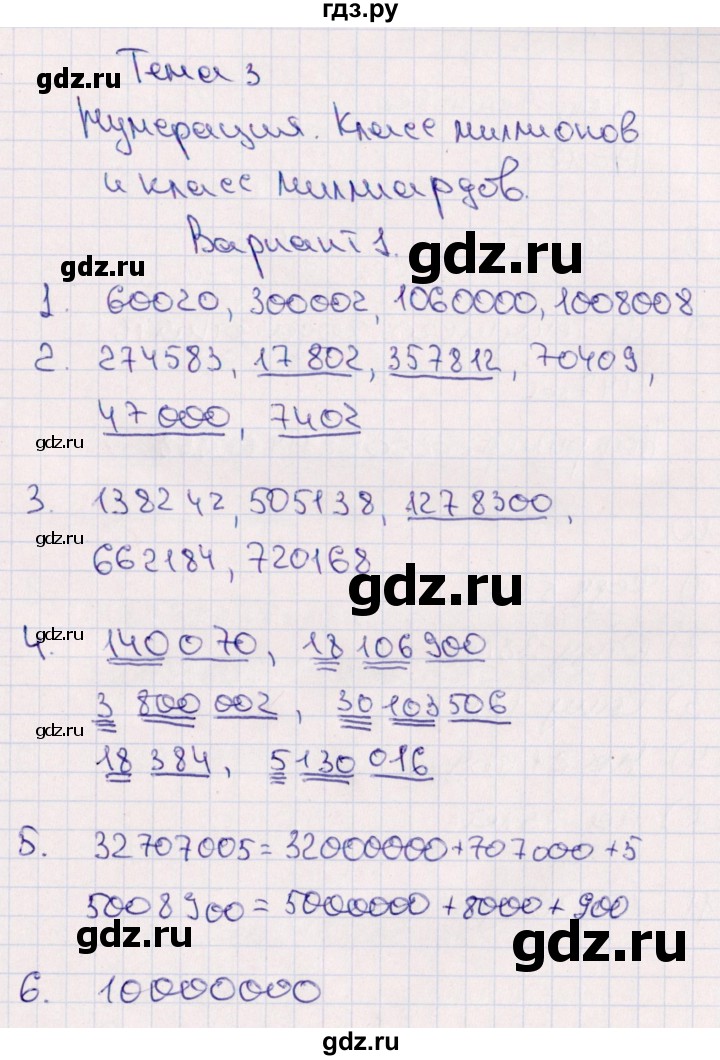 гдз.ру
gdz.ru
Тема 3
Нумерация. Класс миллионов
gdz.ru
и класс миллиардов.
Вариант 1.
gdz.ru
gdz.ru
1. 60020, 300002, 1060000, 1008008
gdz.ru
2. 274583, 17 802, 357812, 70409,
47 000, 7402
gdz.ru
3. 138242, 505138, 1278300,
gdz.ru
662184, 720168
gdz.ru
4. 140 070, 18 106 900
gdz.ru
3 800 002, 30 103 506
gdz.ru
18 384, 5 130 016
5. 32707005 = 32000000 + 707000 + 5
5008900 = 5000000 + 8000 + 900
gdz.ru
gdz.ru
6. 10000000
gdz.ru